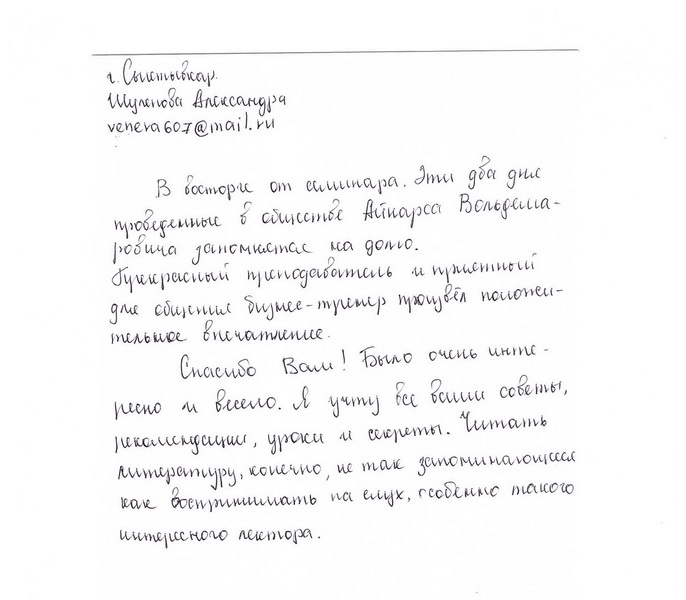 г. Сыктывкар.
Шуленова Александра
venera607@mail.ru
В восторге от семинара. Эти два дня
проведенные в обществе Айнарса Вольдема-
ровича запомнятся на долго.
Прекрасный преподаватель и приятный
для общения бизнес-тренер произвёл положи-
тельное впечатление.
Спасибо Вам! Было очень инте-
ресно и весело. Я учту все ваши советы,
рекомендации, уроки и секреты. Читать
литературу, конечно, не так запоминающееся
как воспринимать на слух, особенно такого
интересного лектора.